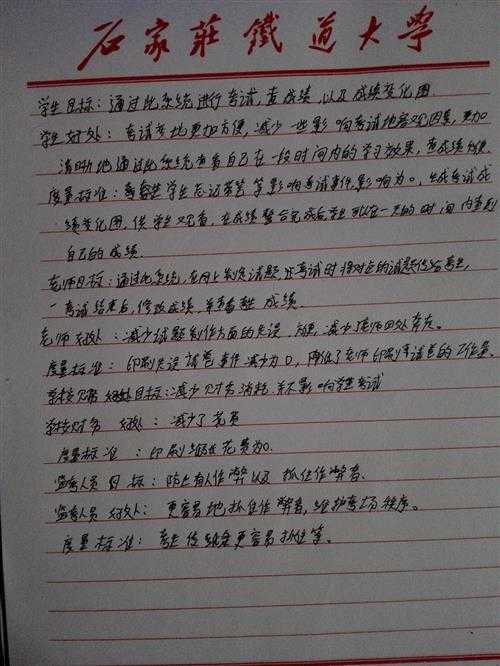 石家莊鐵道大學
学生目标：通过此系统进行考试，查成绩，以及成绩变化图.
学生好处：考试考地更加方便，减少一些影响考试地客观因素，更加
清晰地通过此系统查看自己在一段时间内的学习效果，查成绩方便.
度量标准：考学生忘记带笔等影响考试事件影响为0，生成考试成
绩变化图，供学生观看，在成绩整合完成后学生可以在一天的时间内查到
自己的成绩.
老师目标：通过此系统，在网上制作试题，考试时将对应的试题传给考生，
考试结束后，修改成绩，并查看成绩.
老师好处：减少试题制作方面的失误，减少老师四处奔波。
度量标准：印刷失误试卷事件减少为0，降低了老师印刷等试卷的工作量。
学校财务处目标：减少财务消耗，并不影响学生考试
学校财务好处：减少了花费
度量标准：印刷花费为0.
监考人员目标：防止有人作弊以及抓住作弊者.
监考人员好处：更容易地抓住作弊者，维护考场秩序。
度量标准：考生传纸条更容易抓住等。